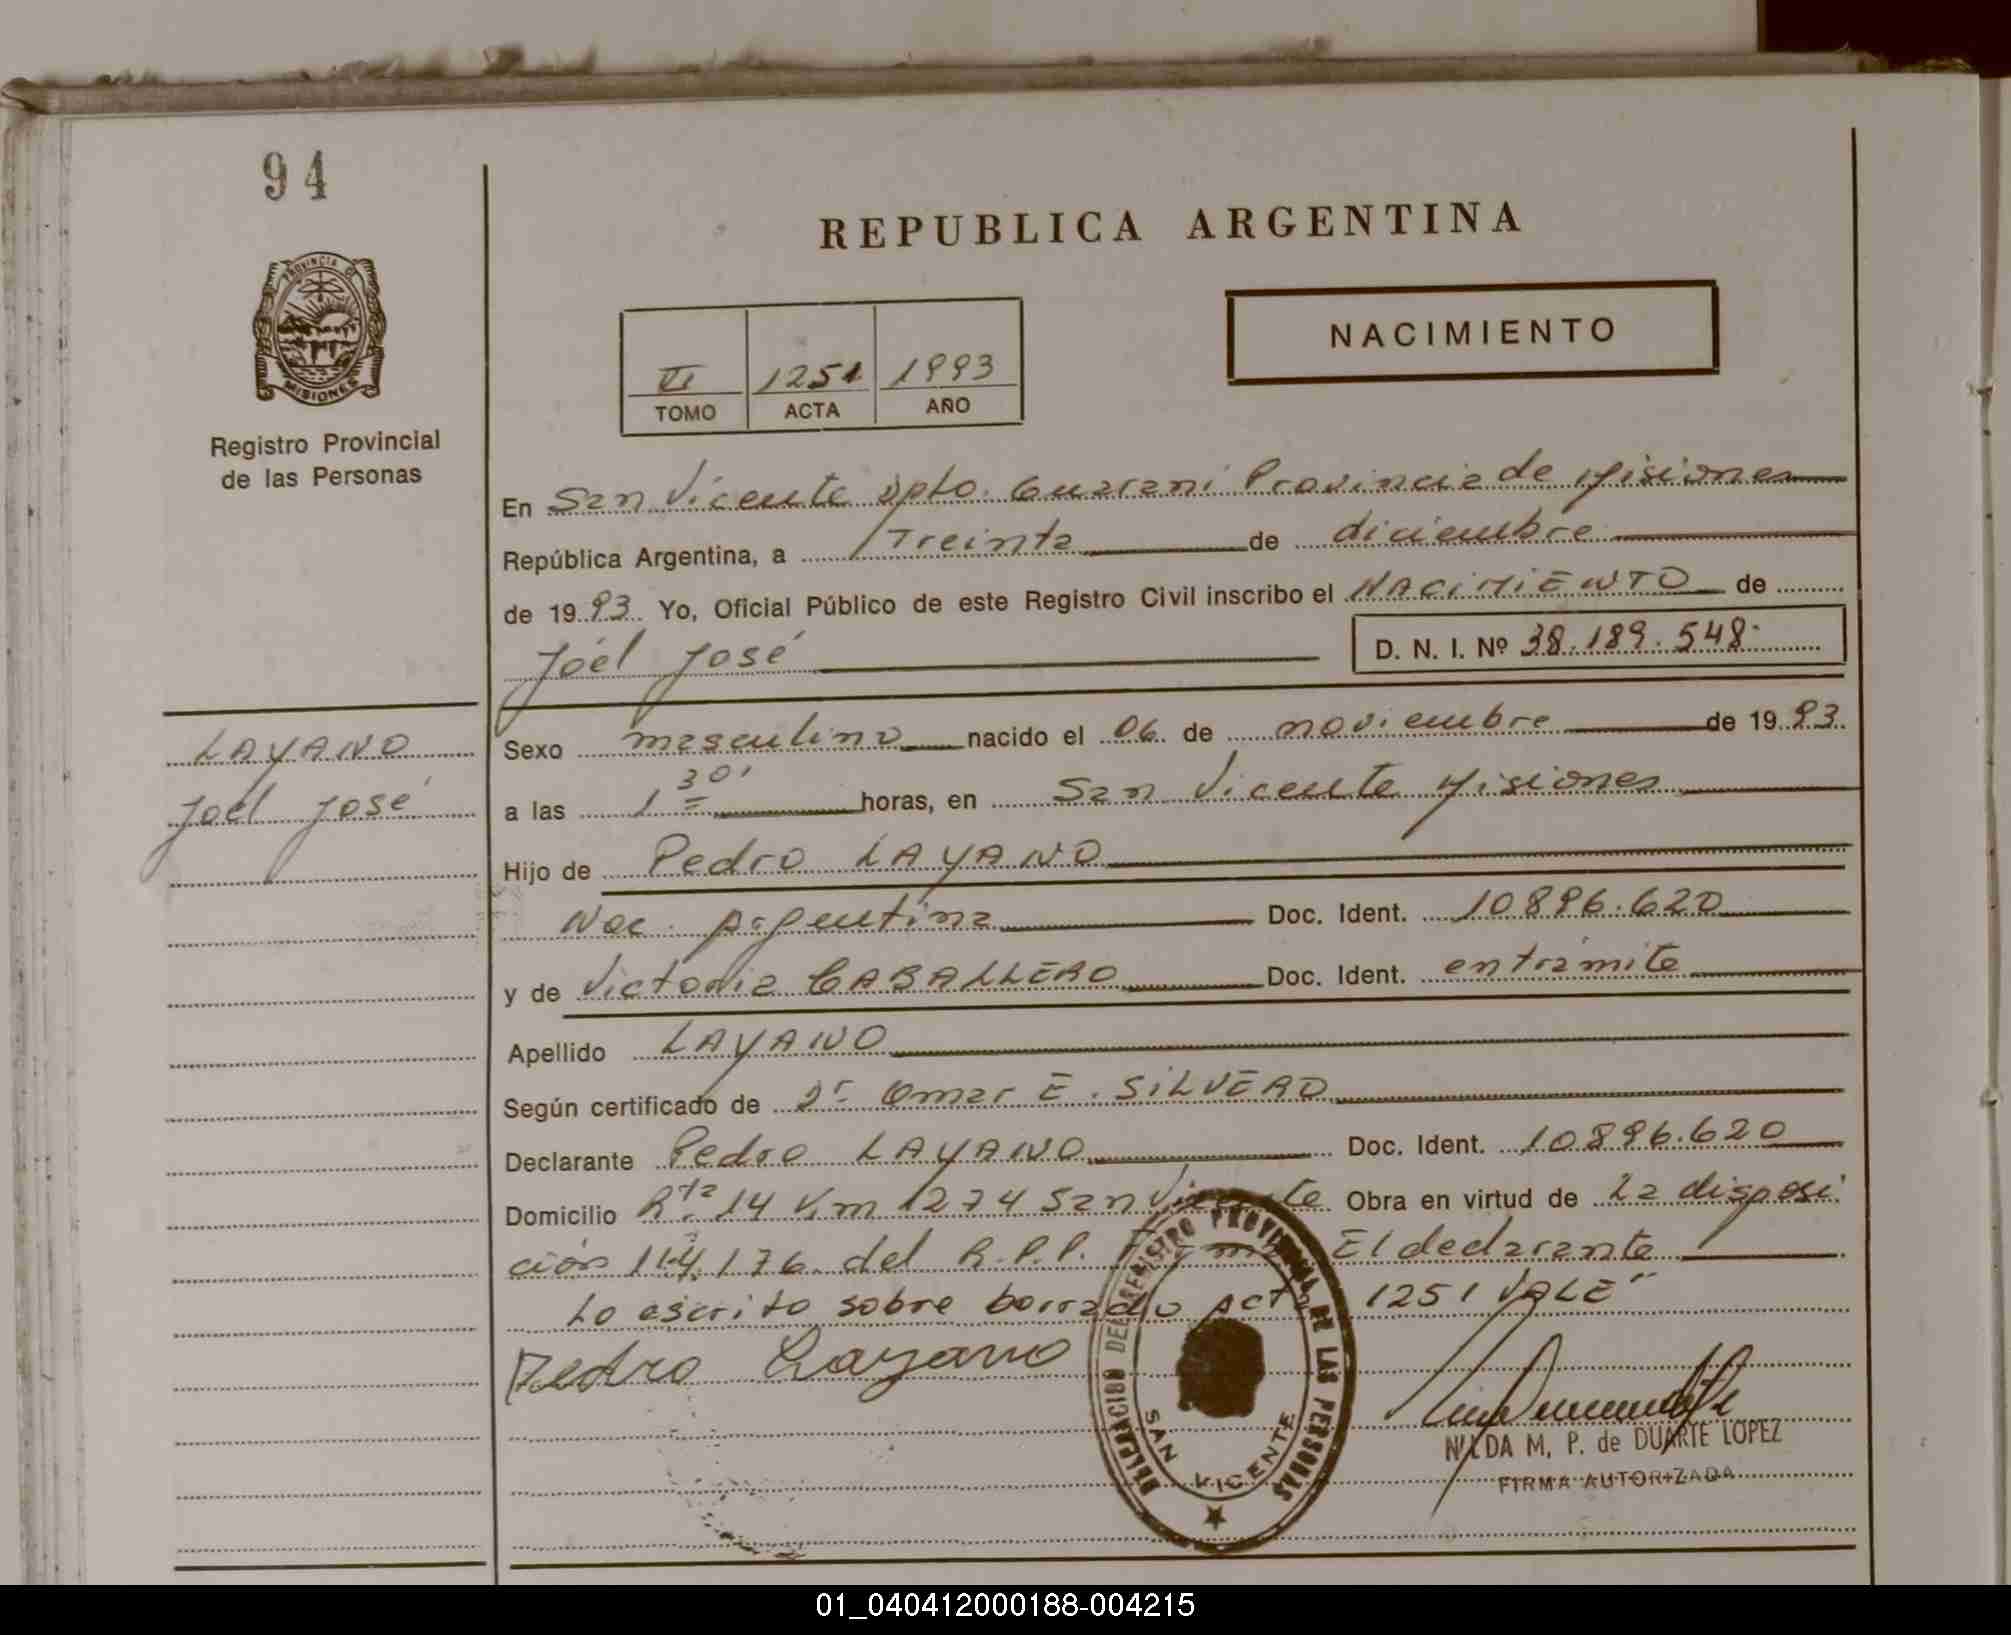 94
PROVINCIA DE
MISIONES
Registro Provincial
de las Personas
REPUBLICA ARGENTINA
NACIMIENTO
VI 1251 1993
TOMO ACTA AÑO
En San Vicente Dpto. Guaraní Provincia de Misiones
República Argentina, a Treinta de diciembre
de 1993. Yo, Oficial Público de este Registro Civil inscribo el NACIMIENTO de
Joél José
D. N. I. Nº 38.189.548
LAYANO
Joél José
Sexo masculino nacido el 06 de noviembre de 1993.
a las 1 30' horas, en San Vicente Misiones
Hijo de Pedro LAYANO
Nac. Argentina Doc. Ident. 10896.620
y de Victoria CABALLERO Doc. Ident. en trámite
Apellido LAYANO
Según certificado de Dr. Omar E. SILVERO
Declarante Pedro LAYANO Doc. Ident. 10896.620
Domicilio Rta. 14 Km 1274 San Vicente Obra en virtud de La disposi
ción 114/76 del R.P.P. El declarante
Lo escrito sobre borrado Acta 1251 VALE"
Pedro Layano
DELEGACION DEL REGISTRO PROVINCIAL DE LAS PERSONAS
SAN VICENTE
NILDA M. P. de DUARTE LOPEZ
FIRMA AUTORIZADA
01_040412000188-004215